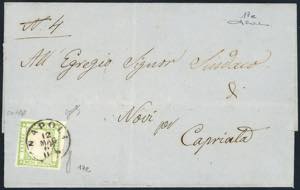 N. 4
All' Egregio Signor Sindaco
di
Novi per
Capriata
NAPOLI
12